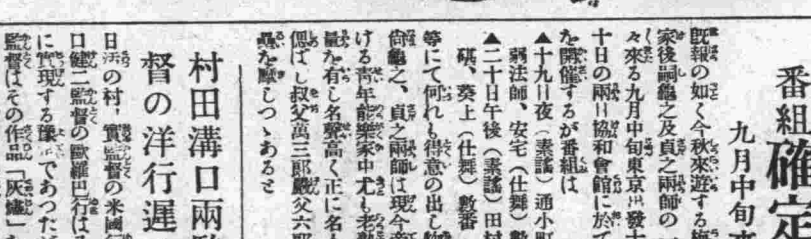 番組確定
九月中旬
既報の如く今秋來遊する梅
家後嗣龜之及貞之兩師の
々來る九月中旬東京出發大
十日の兩日協和會館に於て
を開催するが番組は
▲十九日夜(素謠)通小町
弱法師、安宅(仕舞)數
▲二十日午後(素謠)田村
碪、葵上(仕舞)數番
等にて何れも得意の出し物
尙龜之、貞之兩師は現今
ける靑年能樂家中尤も老
量を有し名聲高く正に名人
偲ばし叔父萬三郞嚴父六郞
を願しつゝあると
村田溝口兩
督の洋行遲
日活の村田實監督の米國
口健二監督の歐羅巴行は
に實現する豫定であつた
監督はその作品「灰燼」